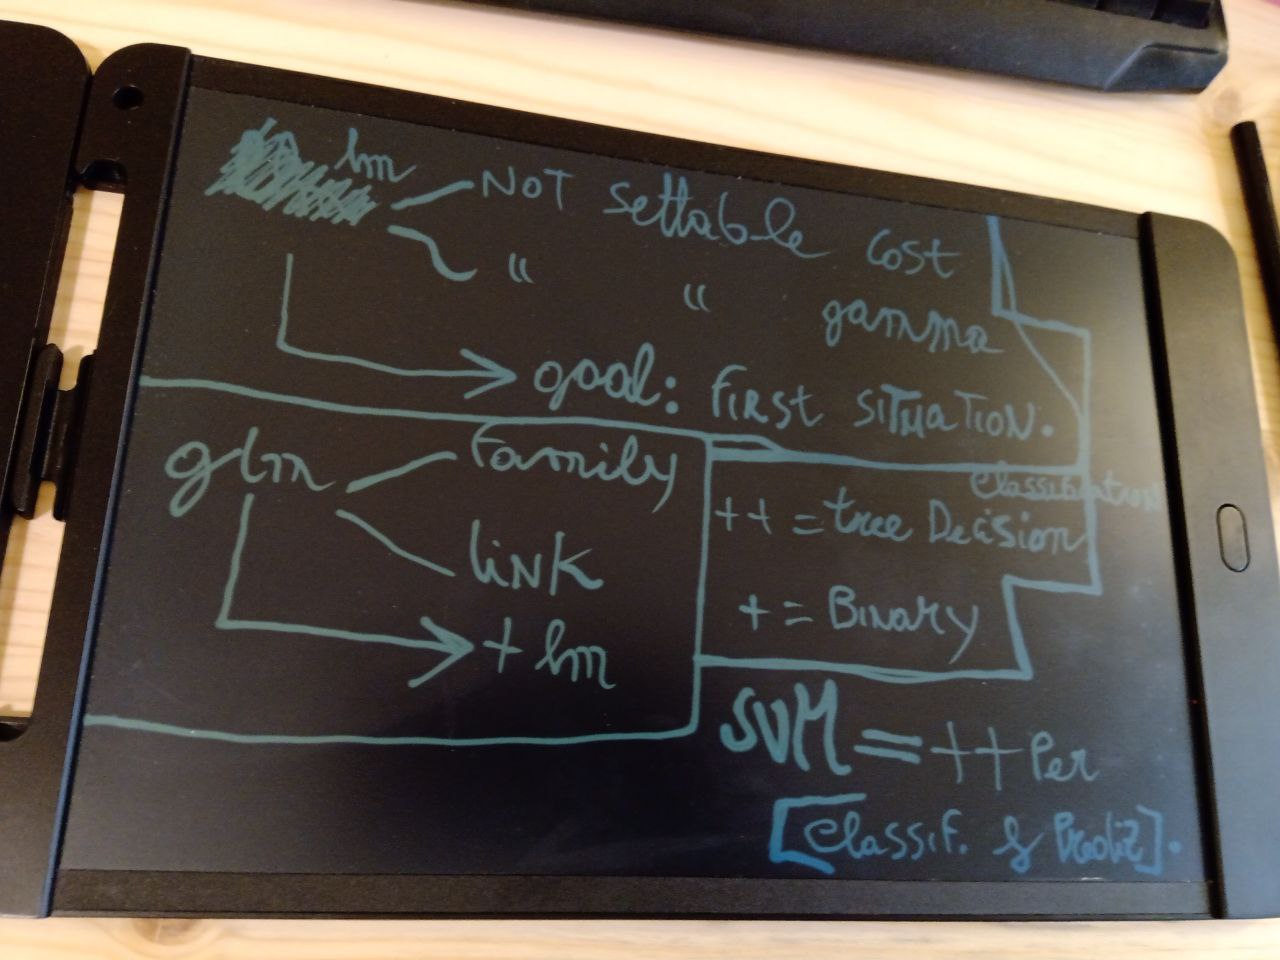 lm
NOT settable cost
" " gamma
good: FIRST SITUATION.
glm
Family
link
+ lm
Classification
++ = tree Decision
+ = Binary
SVM = ++ Per
[Classif. &Prediz].